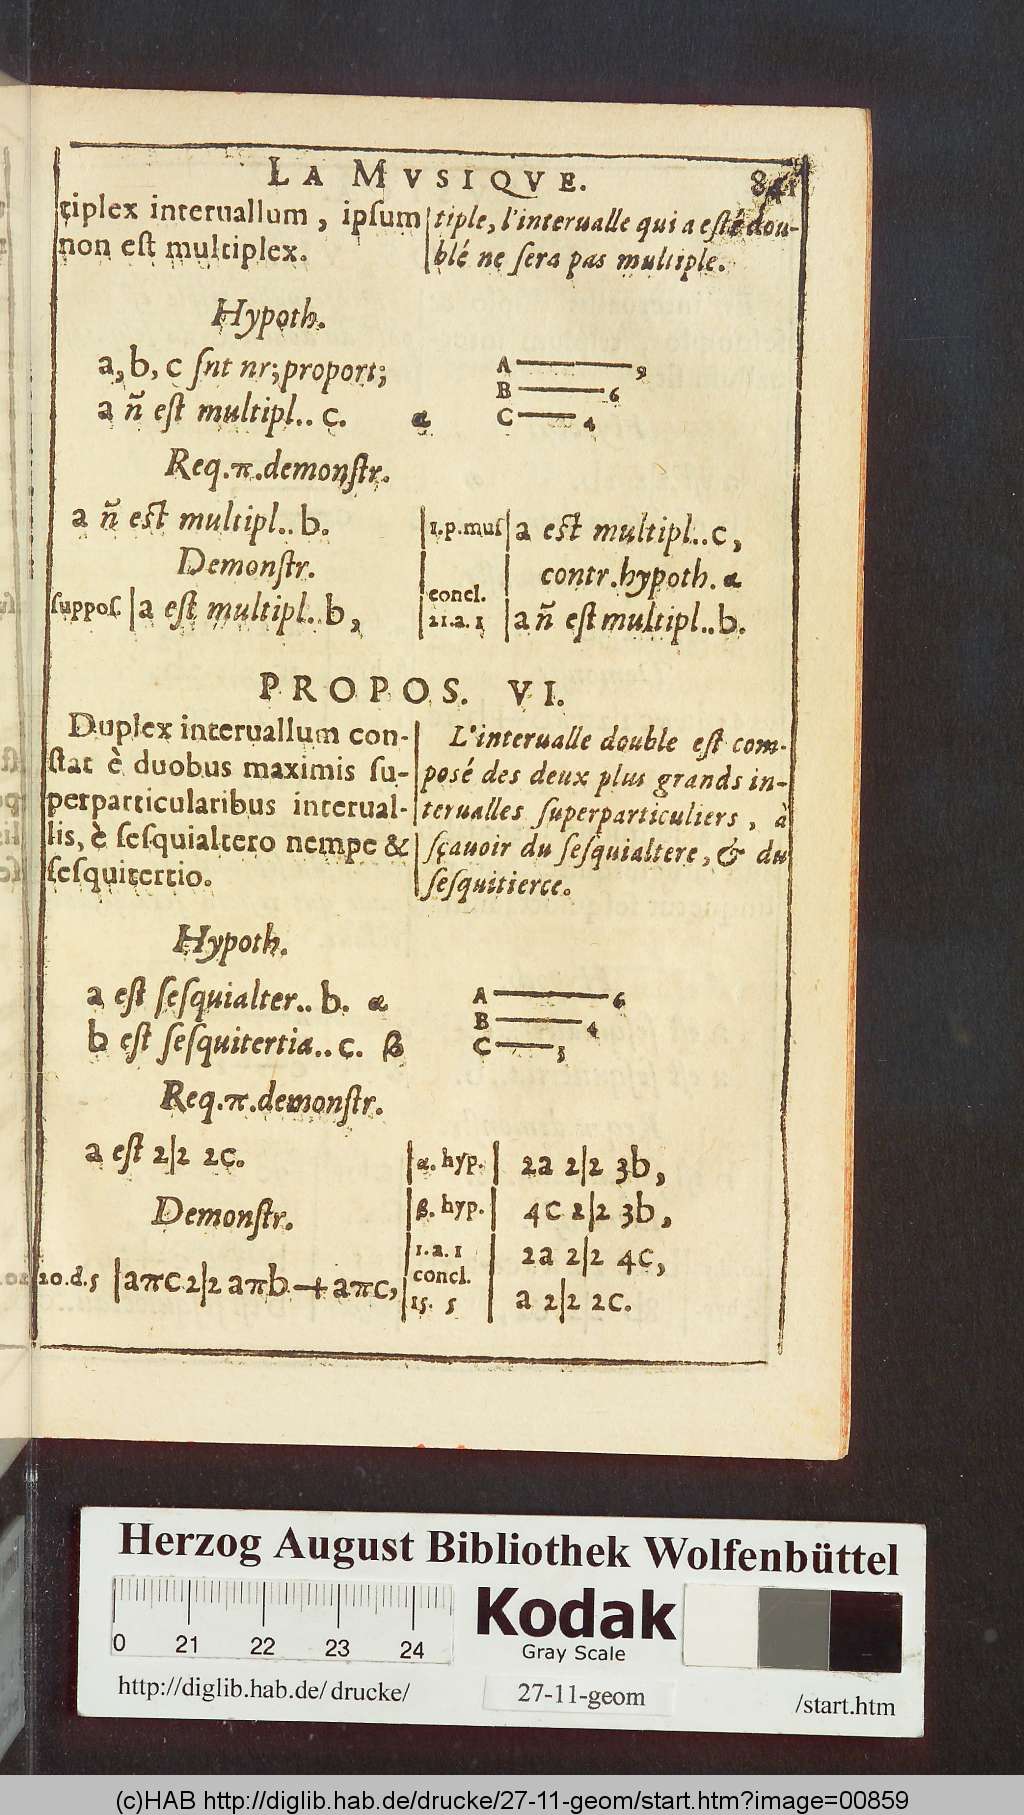 LA MVSIQVE. 841
tiplex interuallum, ipſum
non eſt multiplex.
tiple, l'interualle qui a eſté dou-
blé ne ſera pas multiple.
Hypoth.
a, b, c ſnt nr; proport;
a ñ eſt multipl.. c. α
A 9
B 6
C 4
Req.π.demonſtr.
a ñ est multipl.. b.
Demonſtr.
ſuppoſ. | a eſt multipl.. b,
1.p.muſ | a eſt multipl.. c,
contr.hypoth. α
concl.
21.a.1 | a ñ eſt multipl.. b.
PROPOS. VI.
Duplex interuallum con-
ſtat è duobus maximis ſu-
perparticularibus interual-
lis, è ſeſquialtero nempe &
ſeſquitertio.
L'interualle double eſt com-
posé des deux plus grands in-
terualles ſuperparticuliers, à
ſçauoir du ſeſquialtere, & du
ſeſquitierce.
Hypoth.
a eſt ſeſquialter.. b. α
b eſt ſeſquitertia.. c. β
A 6
B 4
C 3
Req.π.demonſtr.
a eſt 2|2 2c.
Demonſtr.
20.d.5 | aπc 2|2 aπb + aπc,
α. hyp. | 2a 2|2 3b,
β. hyp. | 4c 2|2 3b,
1.a.1 | 2a 2|2 4c,
concl.
15. 5 | a 2|2 2c.
Herzog August Bibliothek Wolfenbüttel
0 21 22 23 24
Kodak
Gray Scale
http://diglib.hab.de/drucke/
27-11-geom
/start.htm
(c)HAB http://diglib.hab.de/drucke/27-11-geom/start.htm?image=00859